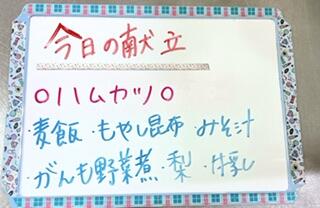 今日の献立
○ハムカツ○
麦飯・もやし昆布・みそ汁
がんも野菜煮・梨・牛乳